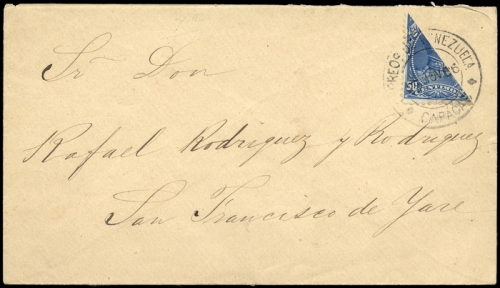 Sr Don
Rafael Rodriguez y Rodriguez
San Francisco de Yare
CORREOS VENEZUELA
CARACAS
50
CENTIMOS